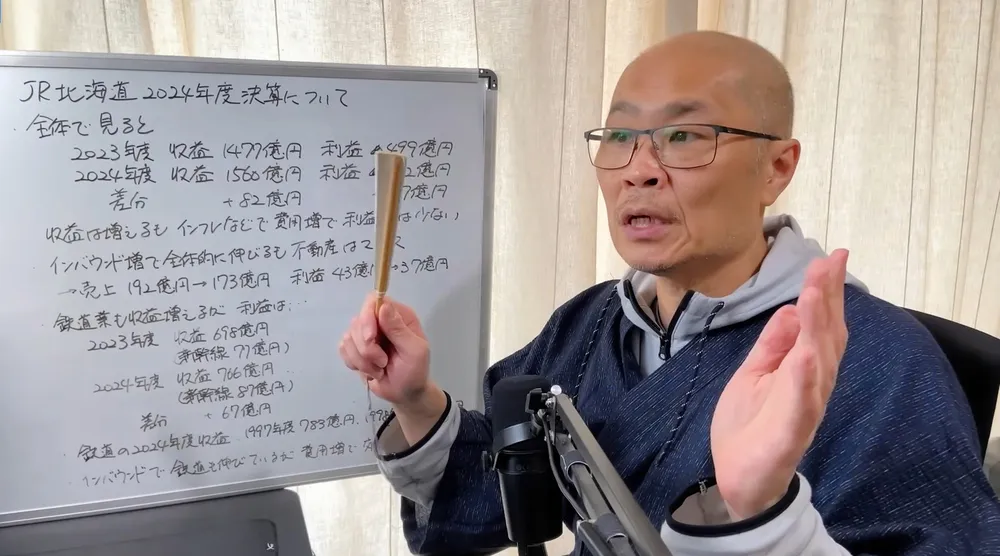 JR北海道 2024年度決算について
・全体で見ると
2023年度 収益 1477億円 利益 499億円
2024年度 収益 1560億円 利益 2億円
差分 +82億円 7億円
収益は増えるも インフレなどで費用増で利益 は少ない
インバウンド増で全体的に伸びるも 不動産は ス
→売上 192億円→173億円 利益 43億 →37億円
・鉄道業も収益増えるが 利益は…
2023年度 収益 698億円
(新幹線 77億円)
2024年度 収益 766億円
(新幹線 87億円)
差分 +67億円
・鉄道の2024年度収益 1997年度 783億円、199
・インバウンドで 鉄道も伸びているが 費用増で